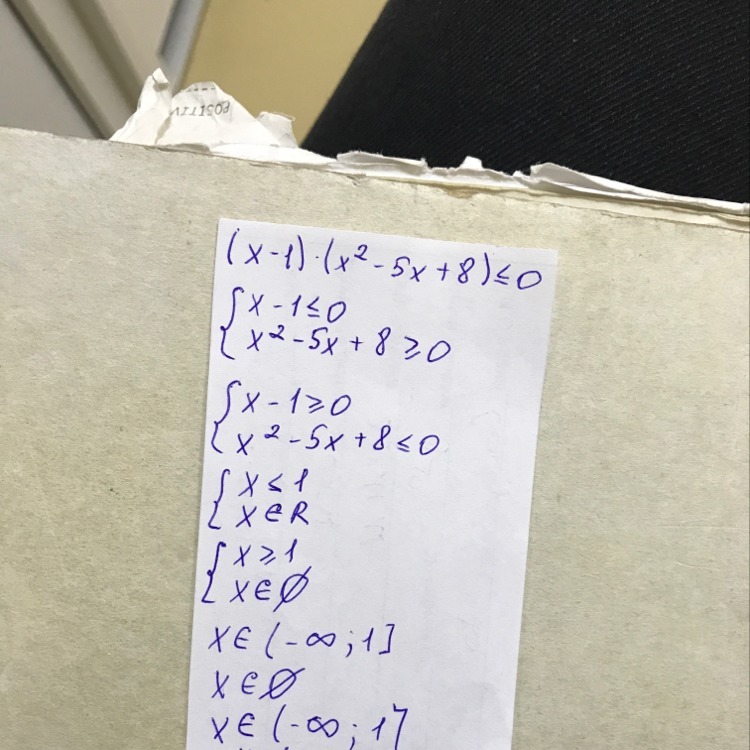 POSITIV
(x-1)·(x²-5x+8)≤0
{x-1≤0
x²-5x+8≥0
{x-1≥0
x²-5x+8≤0
{x≤1
x∈R
{x≥1
x∈∅
x∈(-∞;1]
x∈∅
x∈(-∞;1]